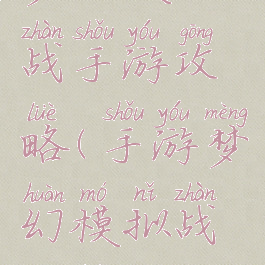 zhàn shǒu yóu gōng
战手游攻
lüè shǒu yóu mèng
略(手游梦
huàn mó nǐ zhàn
幻模拟战